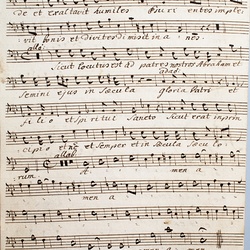 de et exaltavit humiles Esuri entes imple
vit bonis et divites dimisit in a nes
allo
Sicut locutus est ad patres nostros Abraham et
adao
Semini ejus in Sæcula gloria Patri et
Filio et Spiritui Sancto Sicut erat in prin
cipio et nc et Semper et in Sæcula Sæculo
allo
rum A men a
men a